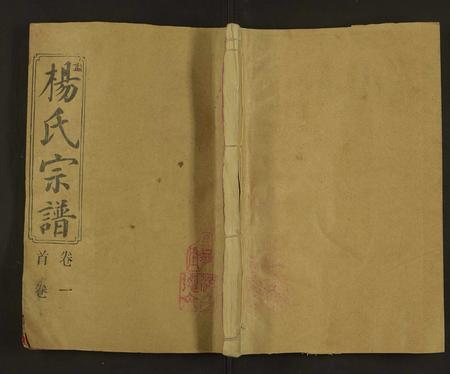 楊氏宗譜
卷一
首卷